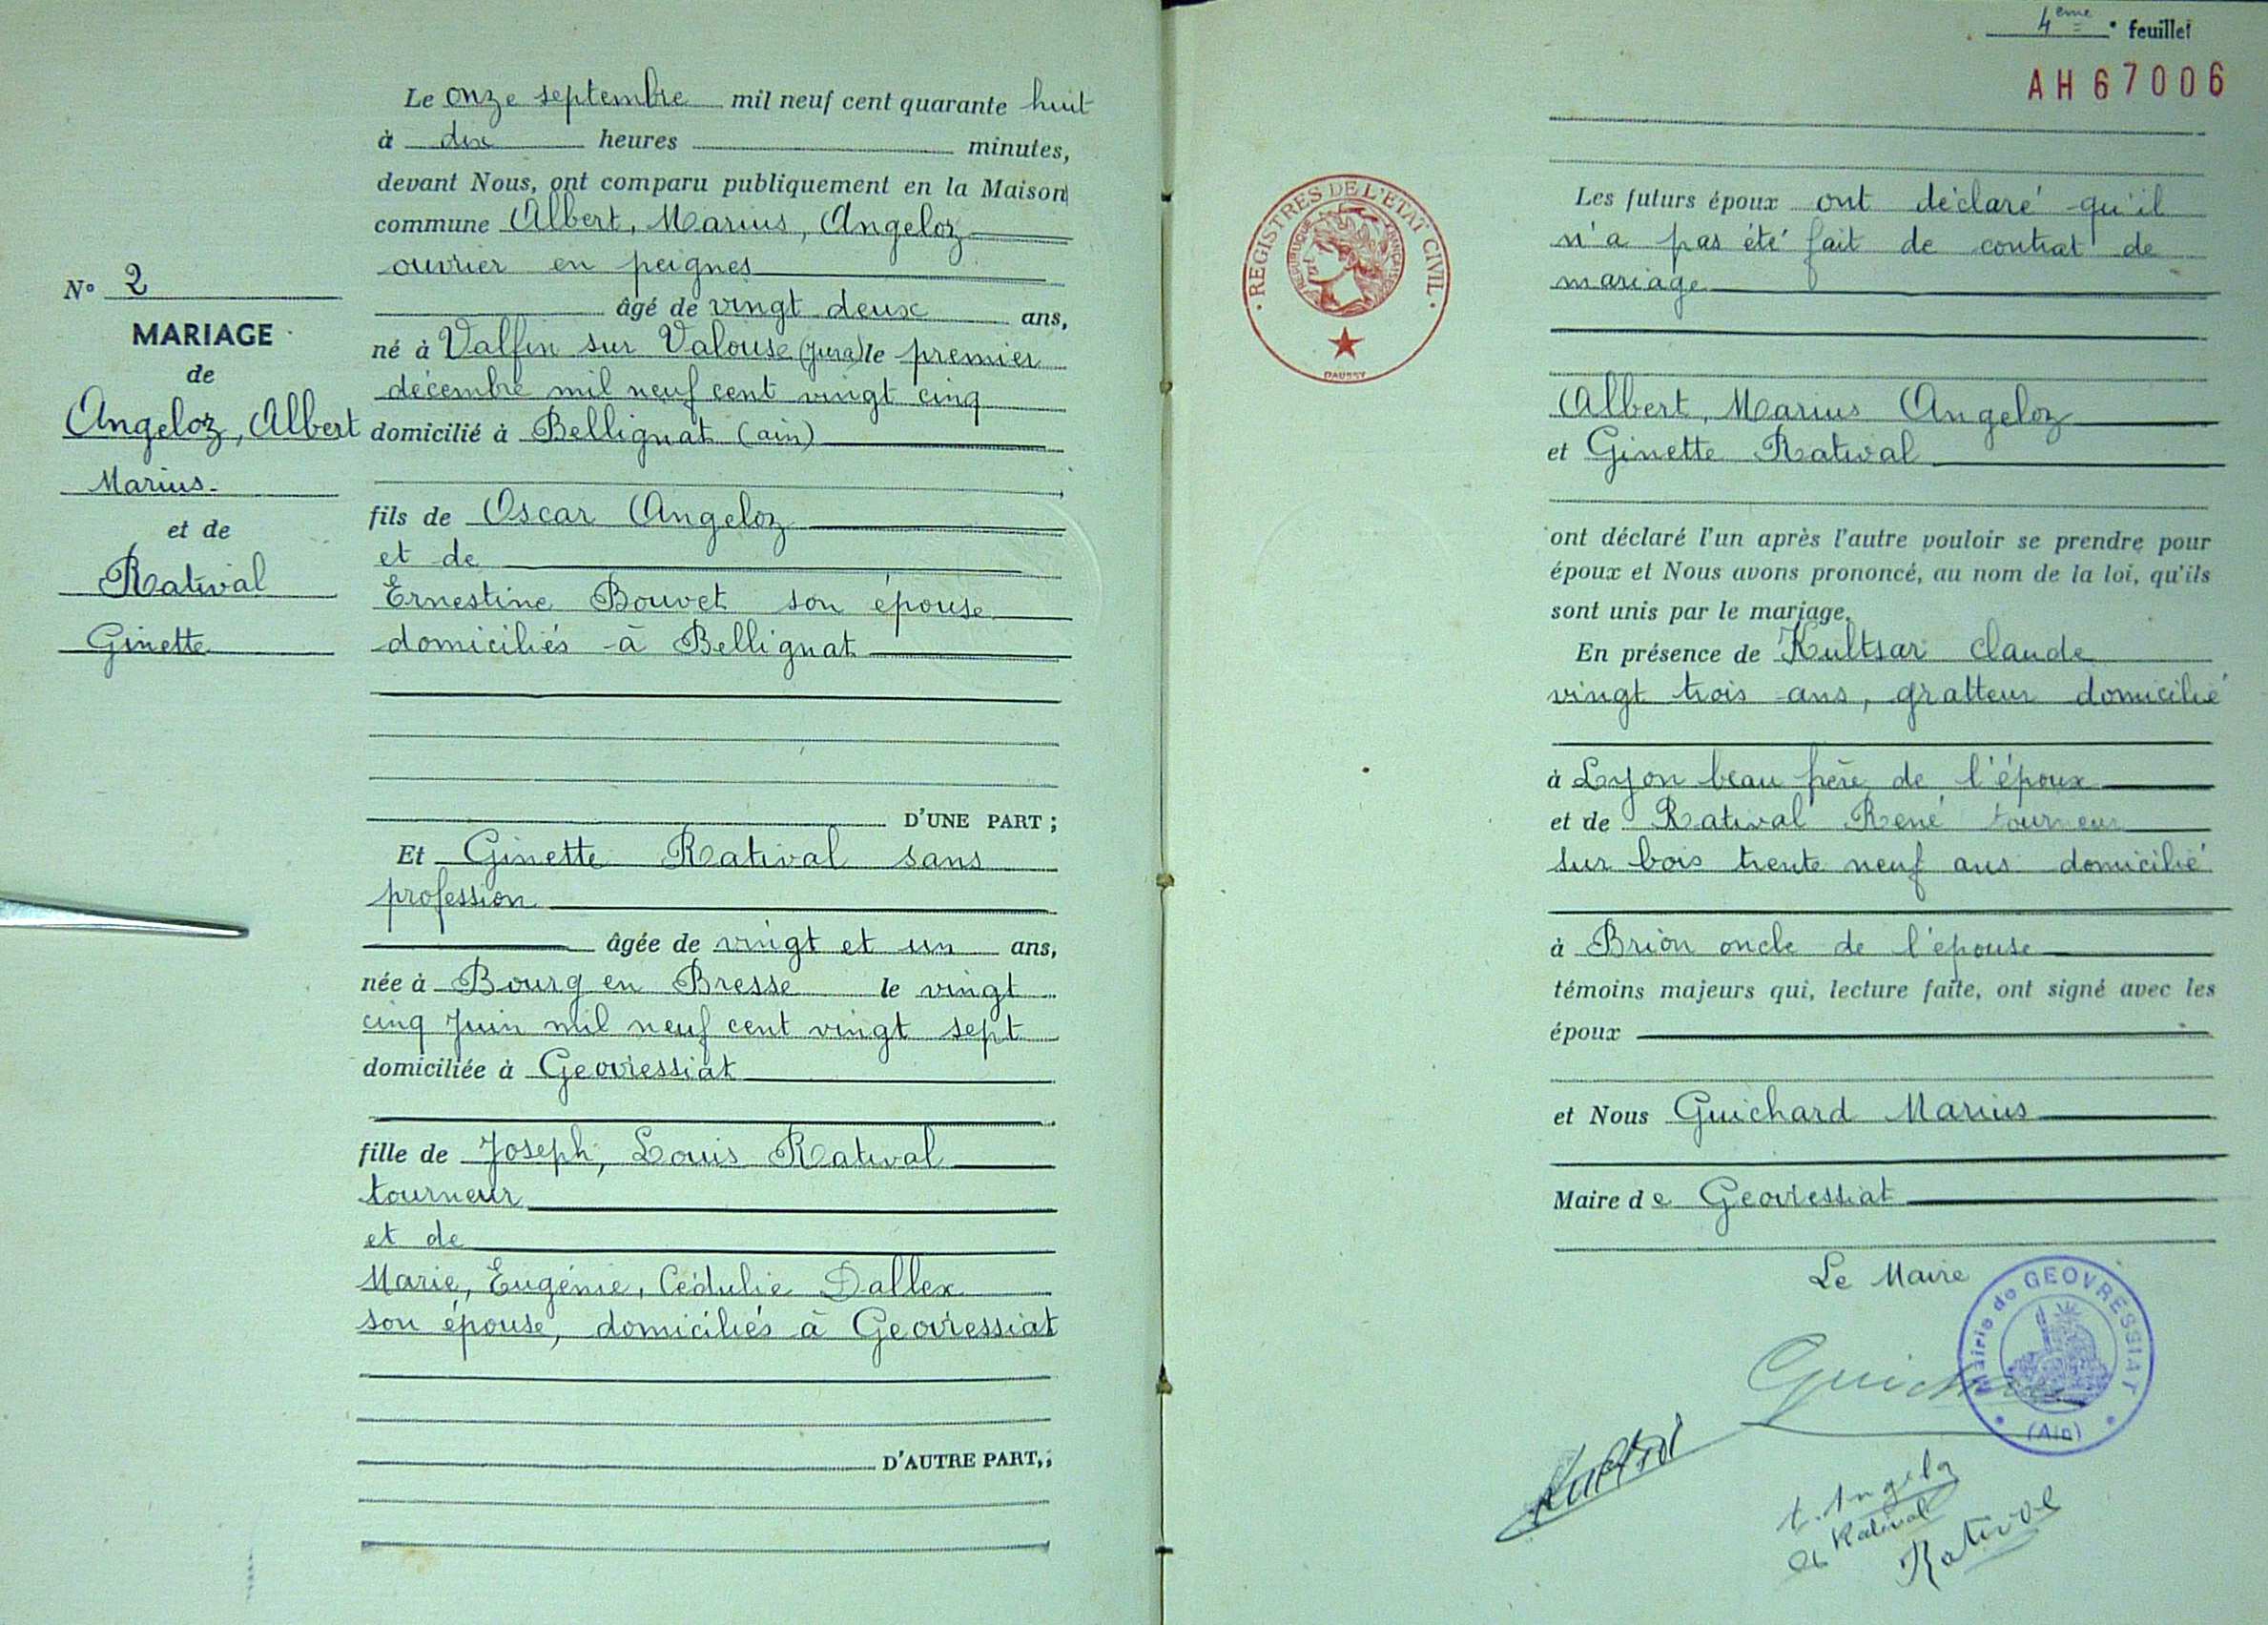 Le onze septembre mil neuf cent quarante huit
à dix heures minutes,
devant Nous, ont comparu publiquement en la Maison
commune Albert, Marius, Angeloz
ouvrier en peignes
âgé de vingt deux ans,
né à Valfin sur Valouse (Jura) le premier
décembre mil neuf cent vingt cinq
domicilié à Bellignat (ain)
fils de Oscar Angeloz
et de
Ernestine Bouvet son épouse
domiciliés à Bellignat
D'UNE PART ;
Et Ginette Ratival sans
profession
âgée de vingt et un ans,
née à Bourg en Bresse le vingt
cinq Juin mil neuf cent vingt sept
domiciliée à Geovressiat
fille de Joseph, Louis Ratival
tourneur
et de
Marie, Eugénie, Cédulie Dallex
son épouse, domiciliés à Geovressiat
D'AUTRE PART,;
N° 2
MARIAGE
de
Angeloz, Albert
Marius
et de
Ratival
Ginette
4eme feuillet
AH67006
REGISTRES DE L'ETAT CIVIL
REPUBLIQUE FRANÇAISE
DAUSSY
Les futurs époux ont déclaré qu'il
n'a pas été fait de contrat de
mariage
Albert, Marius Angeloz
et Ginette Ratival
ont déclaré l'un après l'autre vouloir se prendre pour
époux et Nous avons prononcé, au nom de la loi, qu'ils
sont unis par le mariage.
En présence de Kultsar Claude
vingt trois ans, gratteur domicilié
à Lyon beau frère de l'époux
et de Ratival René tourneur
sur bois trente neuf ans domicilié
à Brion oncle de l'épouse
témoins majeurs qui, lecture faite, ont signé avec les
époux
et Nous Guichard Marius
Maire de Geovressiat
Le Maire
Mairie de GEOVRESSIAT
(Ain)
Guichard
Ratival
Ratival